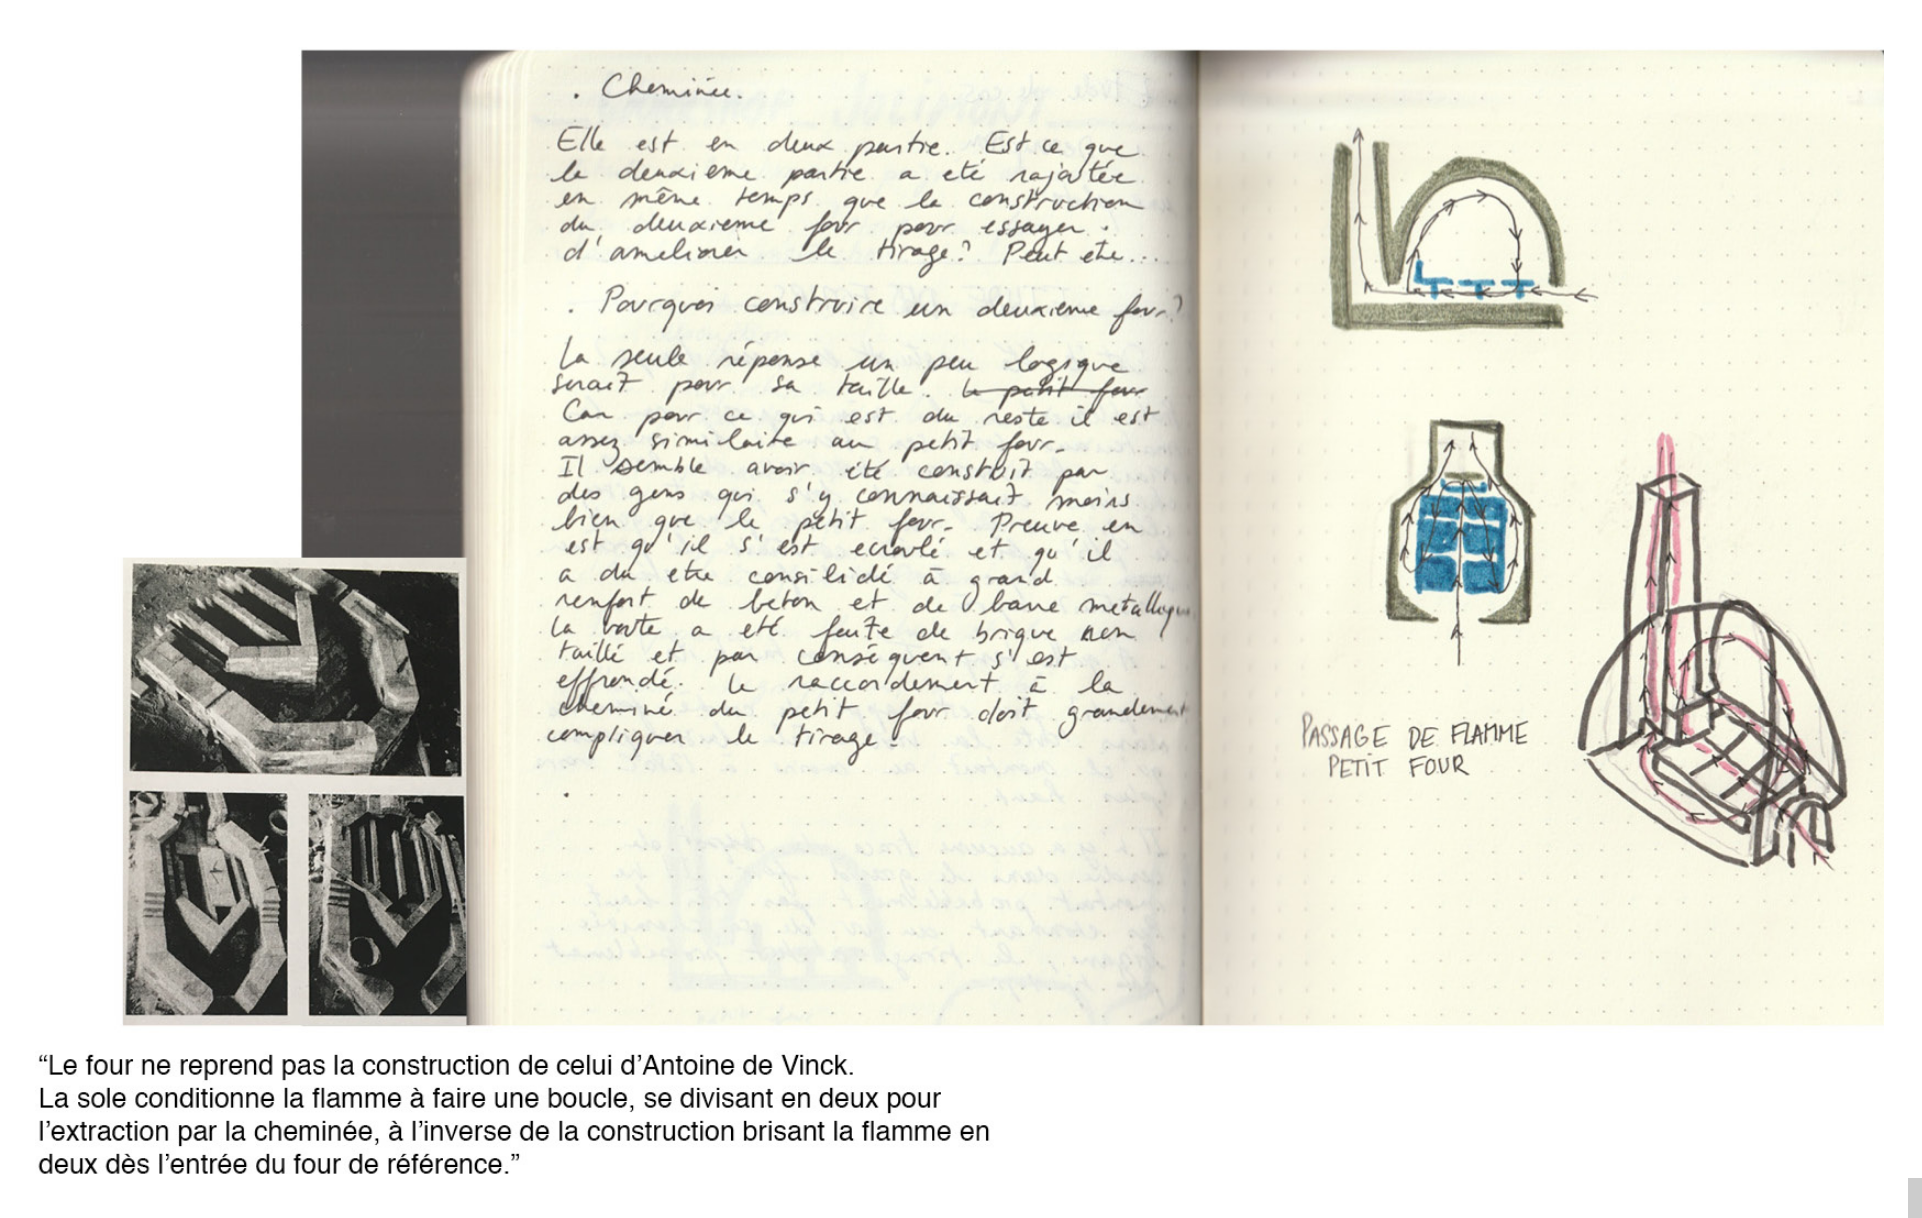 . Cheminée.
Elle est en deux partie. Est ce que
la deuxieme partie a eté rajoutée
en même temps que la construction
du deuxieme four pour essayer
d'ameliorer le tirage? Peut etre...
. Pourquoi construire un deuxieme four?
La seule réponse un peu logique
serait pour sa taille. Le petit four
Car pour ce qui est du reste il est
assez similaire au petit four.
Il semble avoir été construit par
des gens qui s'y connaissait moins
bien que le petit four. Preuve en
est qu'il s'est ecroulé et qu'il
a du etre consilidé à grand
renfort de beton et de barre metallique
la voute a eté faite de brique non
taillé et par conséquent s'est
effrondé. Le raccordement à la
cheminé du petit four doit grandement
compliquer le tirage.
PASSAGE DE FLAMME
PETIT FOUR
“Le four ne reprend pas la construction de celui d’Antoine de Vinck.
La sole conditionne la flamme à faire une boucle, se divisant en deux pour
l’extraction par la cheminée, à l’inverse de la construction brisant la flamme en
deux dès l’entrée du four de référence.”